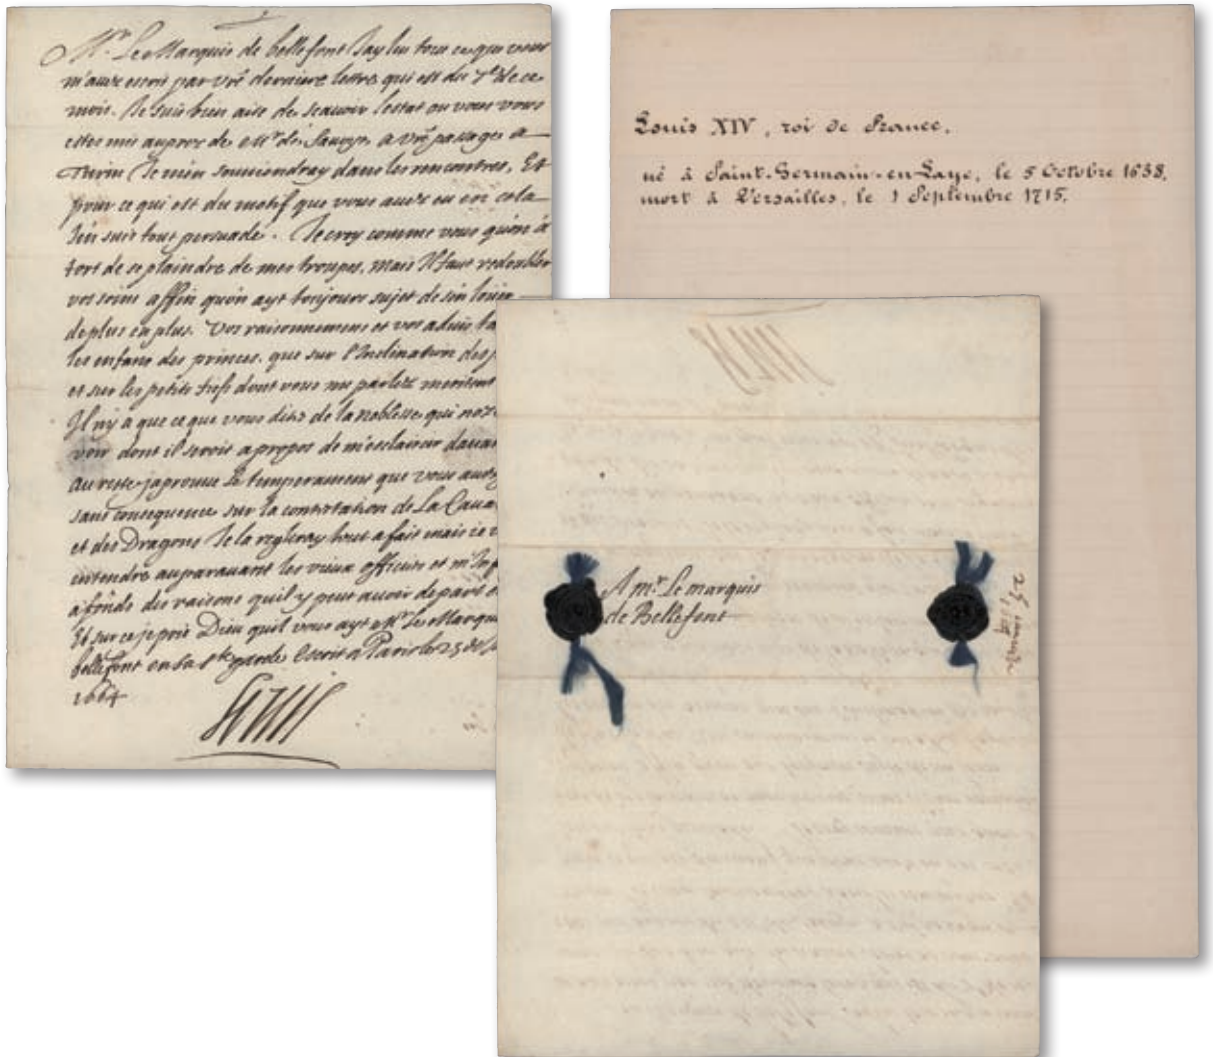 Mr. Le Marquis de bellefont Jay leu tout ce que vous
m'auez escrit par vre derniere lettre qui est du 7e de ce
mois. Je suis bien aise de scauoir l'estat ou vous vous
estes mis aupres de Mr de Sauoye, a vre passage a
Turin Je m'en souuiendray dans les rencontres, Et
pour ce qui est du motif que vous auez eu en cela
J'en suis tout persuadé. Je croy comme vous qu'on à
tort de se plaindre de mes troupes, mais Il faut redoubler
vos soins affin qu'on ayt tousjours sujet de s'en loüer
de plus en plus. Vos raisonnemens et vos aduis
les enfans des princes, que sur l'Inclination des
et sur les petits fiefs dont vous me parlez meritent
Il n'y a que ce que vous dites de la noblesse qui
voir dont il seroit a propos de m'esclaircir
au reste japrouue Le temperament que vous auez
sans consequence sur la contestation de La Caua
et des Dragons Je la regleray tout a fait mais je
entendre auparauant les vieux officiers et m'Inf
a fonds des raisons qu'il y peut auoir de part
Et sur ce je prie Dieu qu'il vous ayt Mr Le Marqu
bellefont en sa ste garde Escrit a Paris le 25
1664
Louis
Louis XIV, roi de France,
né à Saint-Germain-en-Laye, le 5 Octobre 1638,
mort à Versailles, le 1 Septembre 1715.
A mr. Le marquis
de Bellefont